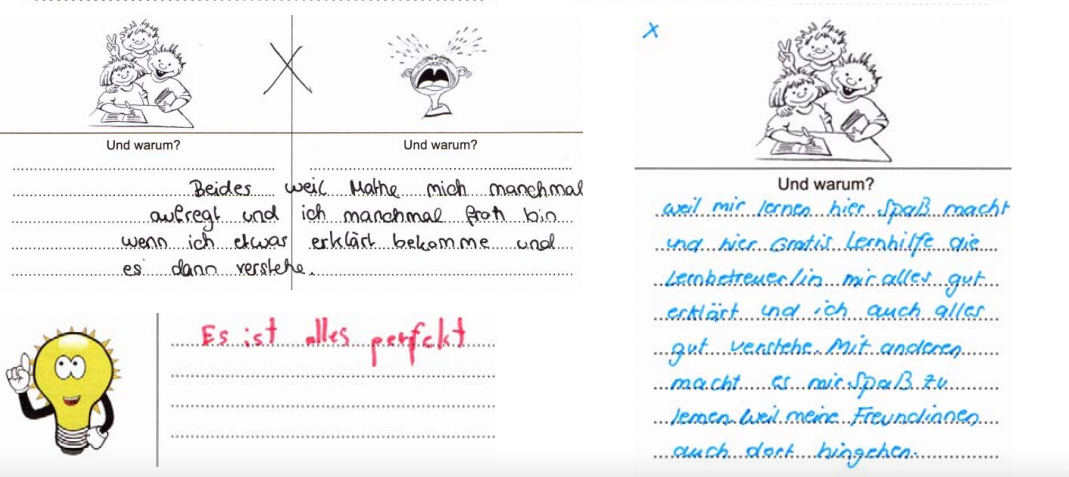 Und warum?
Und warum?
Beides weil Mathe mich manchmal
aufregt und ich manchmal froh bin
wenn ich etwas erklärt bekomme und
es dann verstehe.
Es ist alles perfekt
x
Und warum?
weil mir lernen hier Spaß macht
und hier Gratis Lernhilfe die
Lernbetreuer/in mir alles gut
erklärt und ich auch alles
gut verstehe. Mit anderen
macht es mir Spaß zu
lernen weil meine Freundinnen
auch dort hingehen.